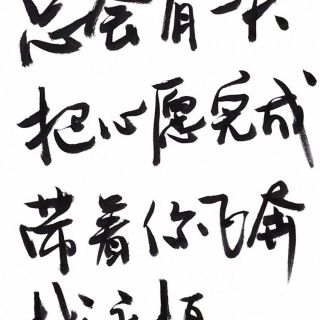 总会有天
把心愿完成
带着你飞奔
找永恒